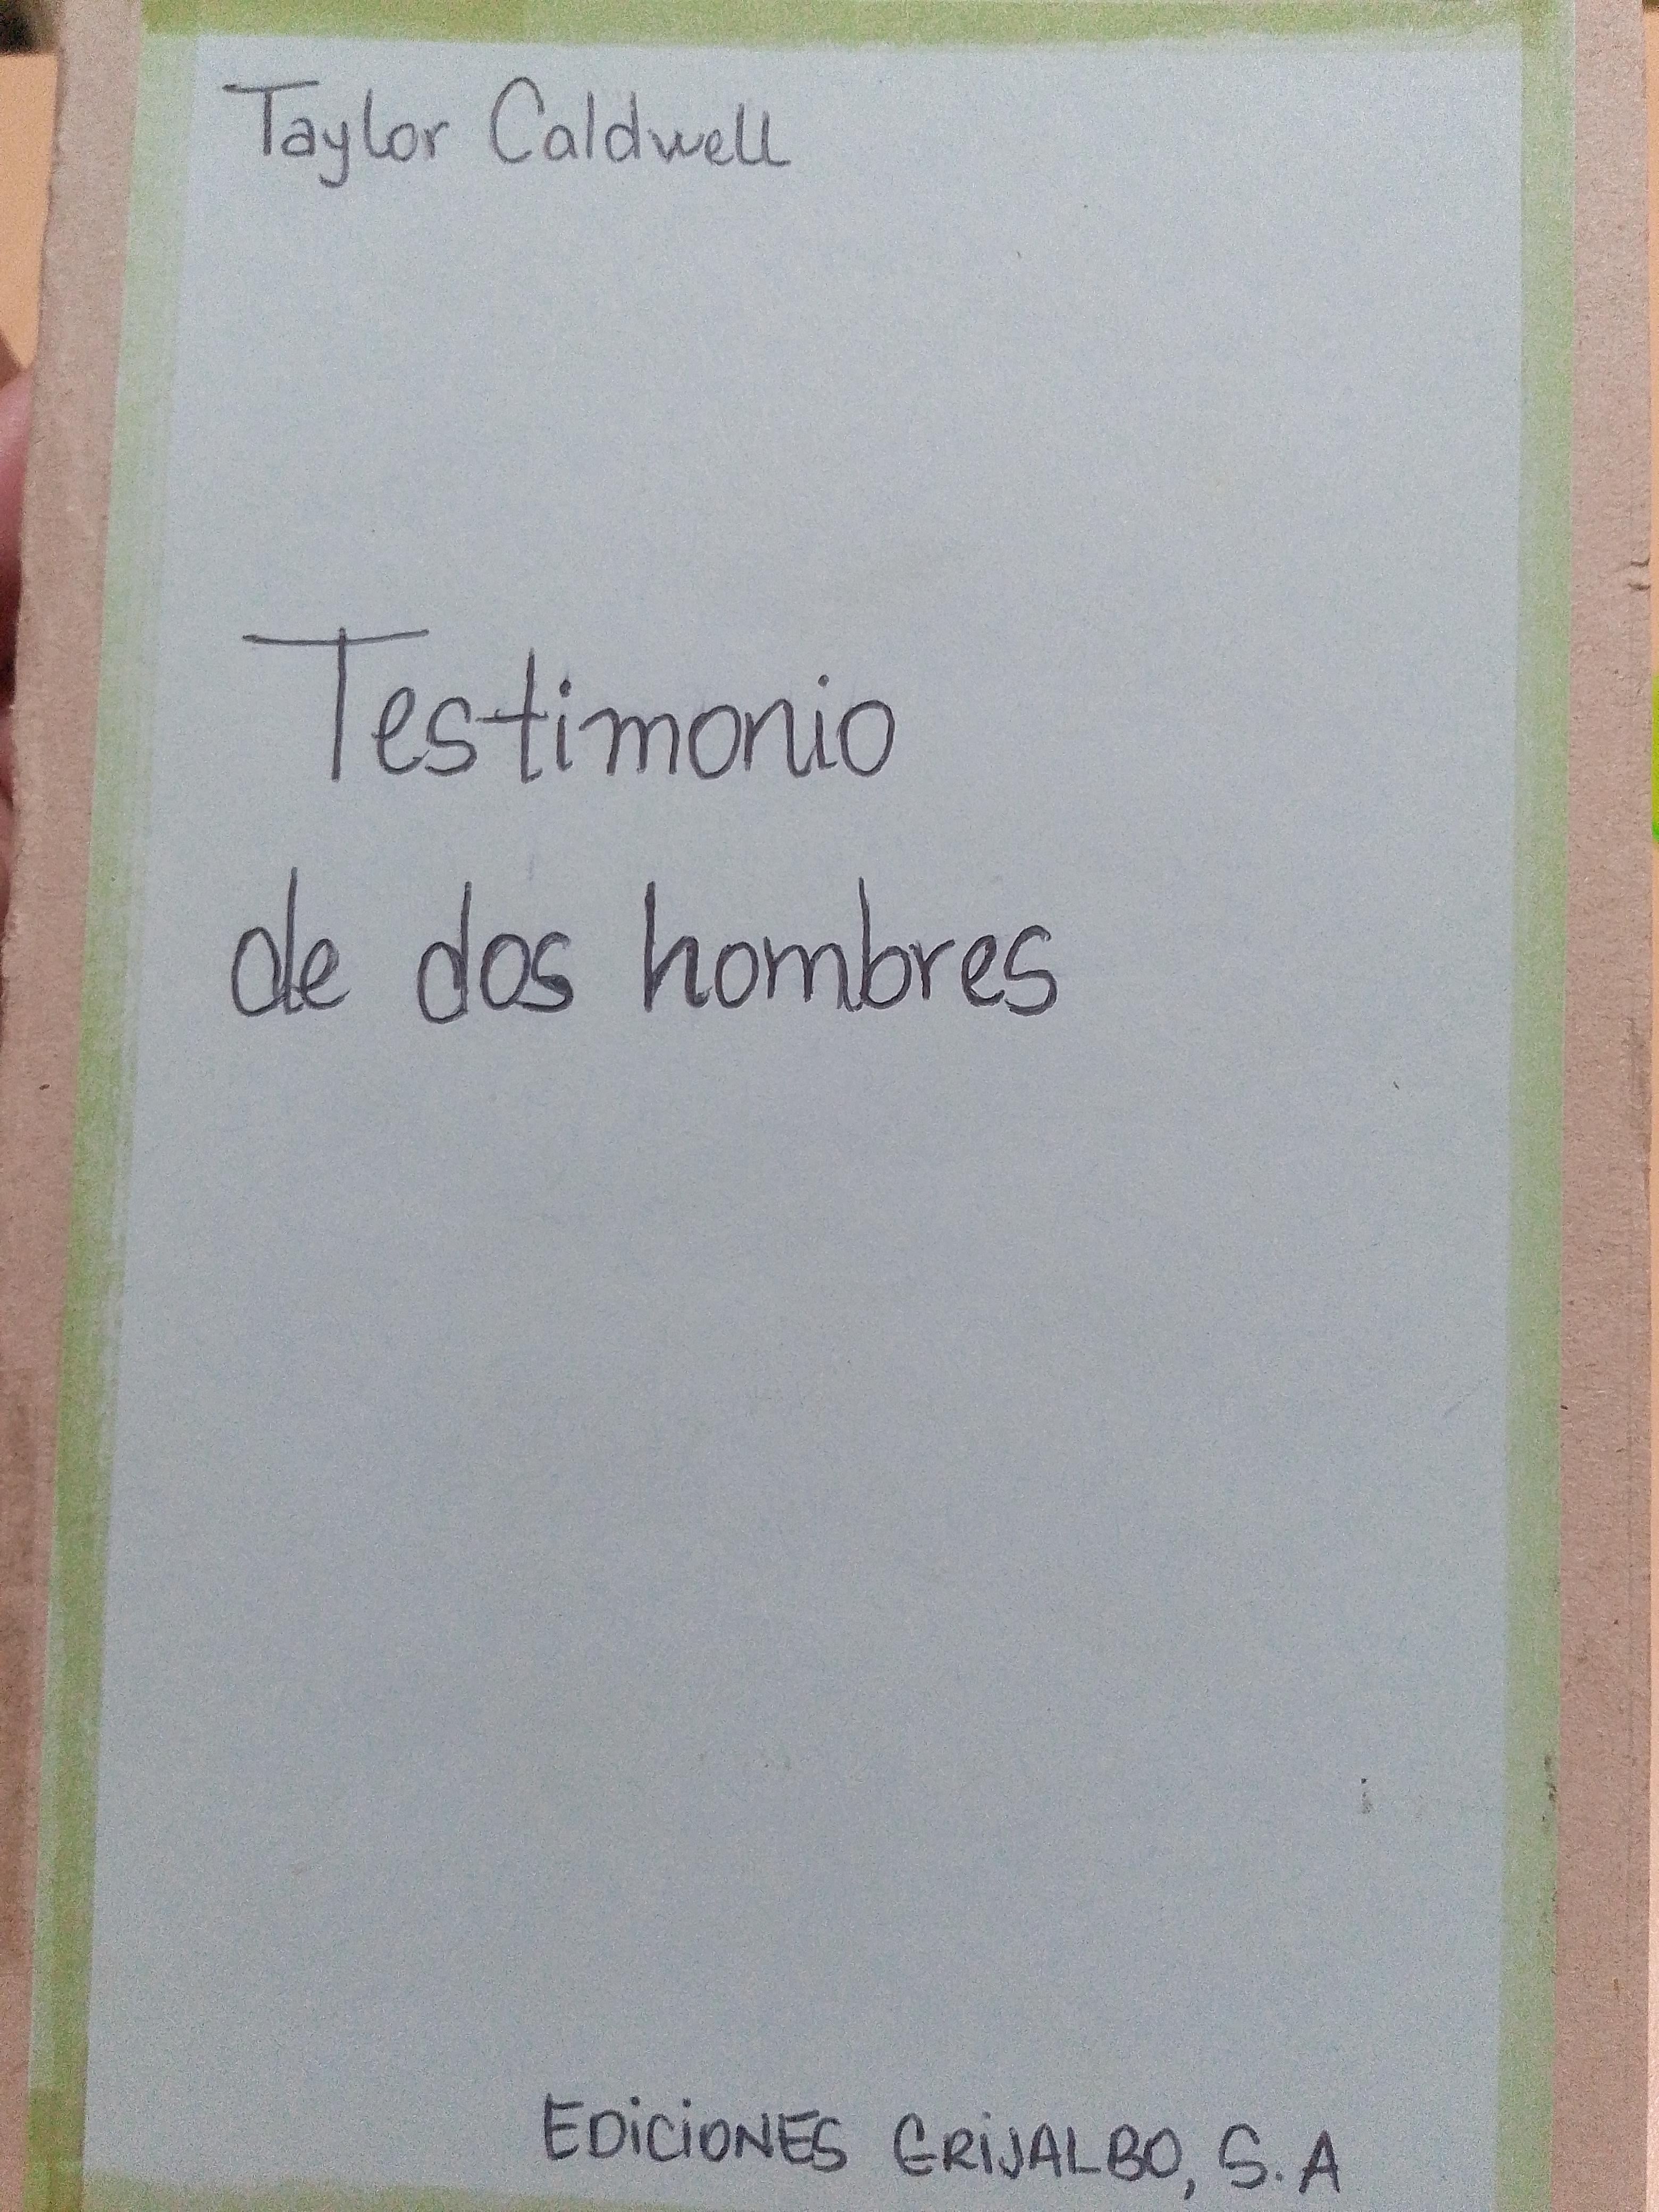 Taylor Caldwell
Testimonio
de dos hombres
EDICIONES GRIJALBO, S.A